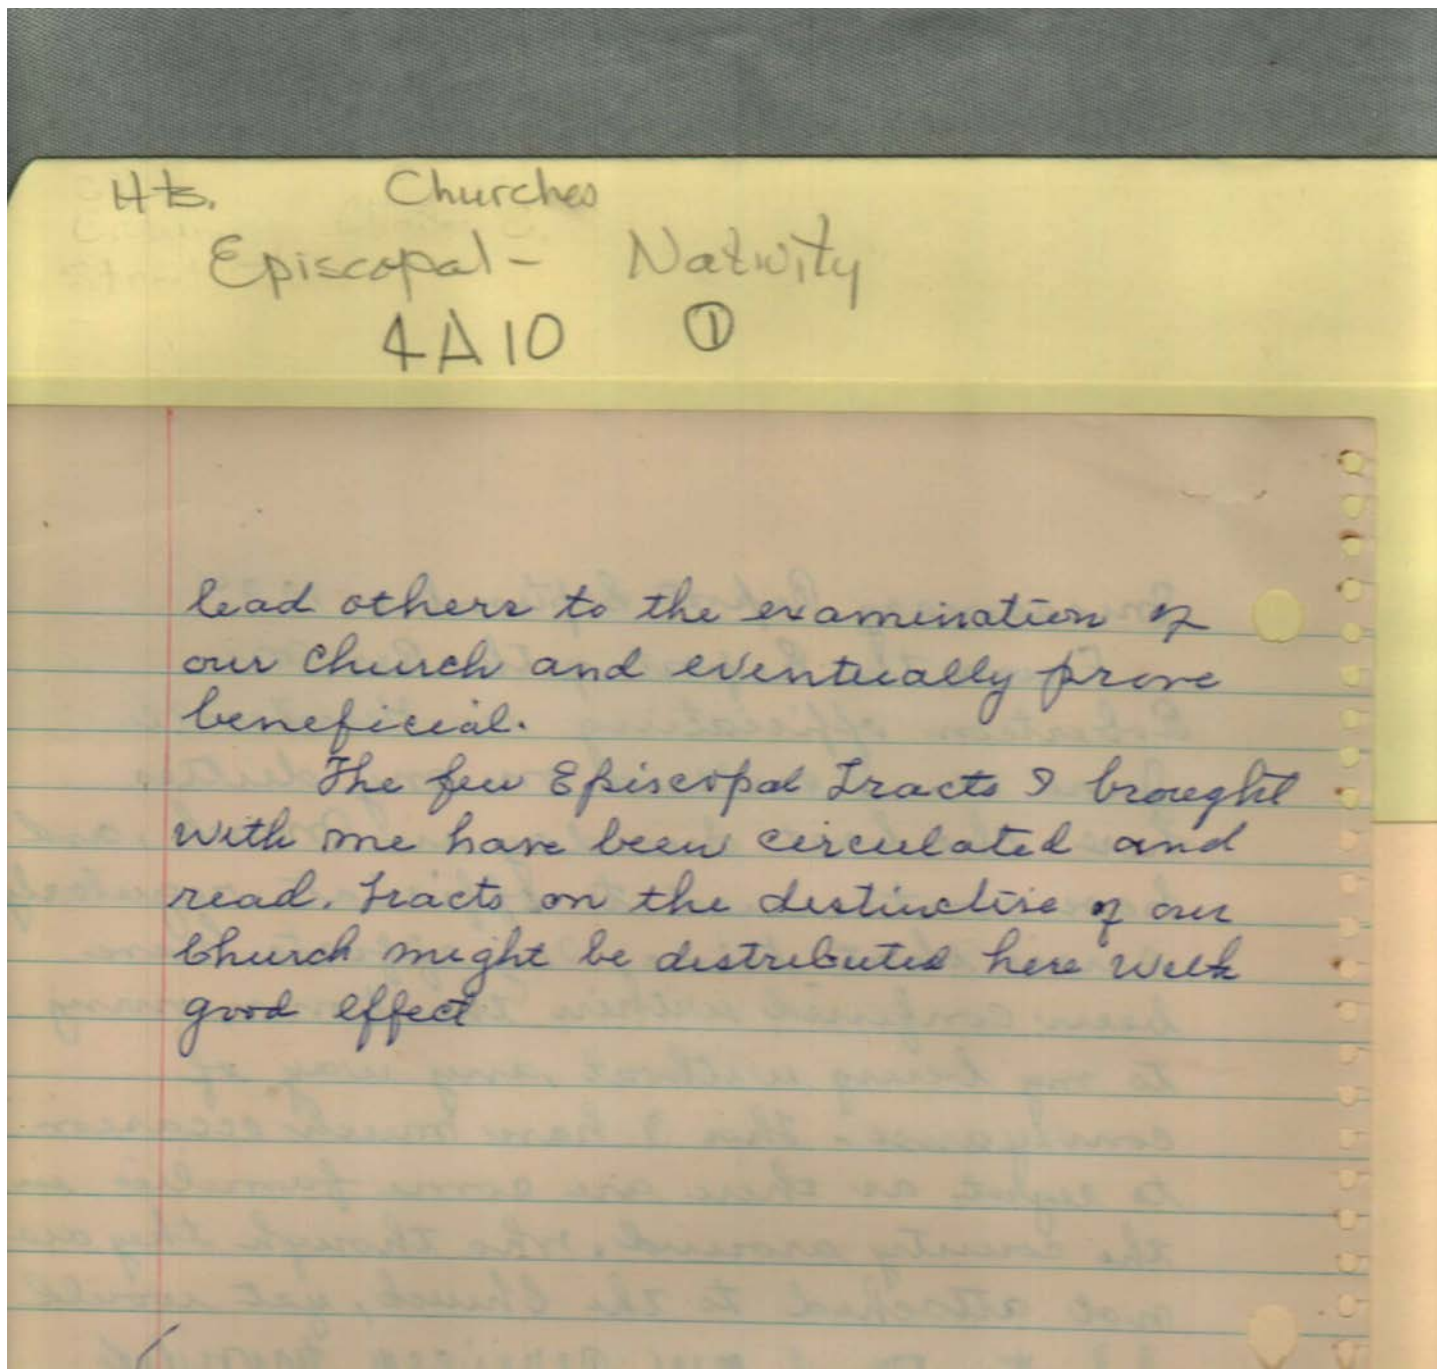 Hts. Churches
Episcopal - Nativity
4A10 ①
lead others to the examination of
our church and eventually prove
beneficial.
The few Episcopal Tracts I brought
with me have been circulated and
read. Tracts on the distinctive of our
Church might be distributed here with
good effect